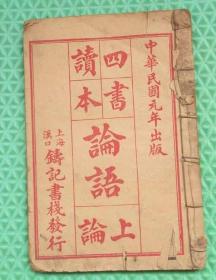 中華民國元年出版
四書
讀本
論語
上論
上海
漢口
鑄記書棧發行